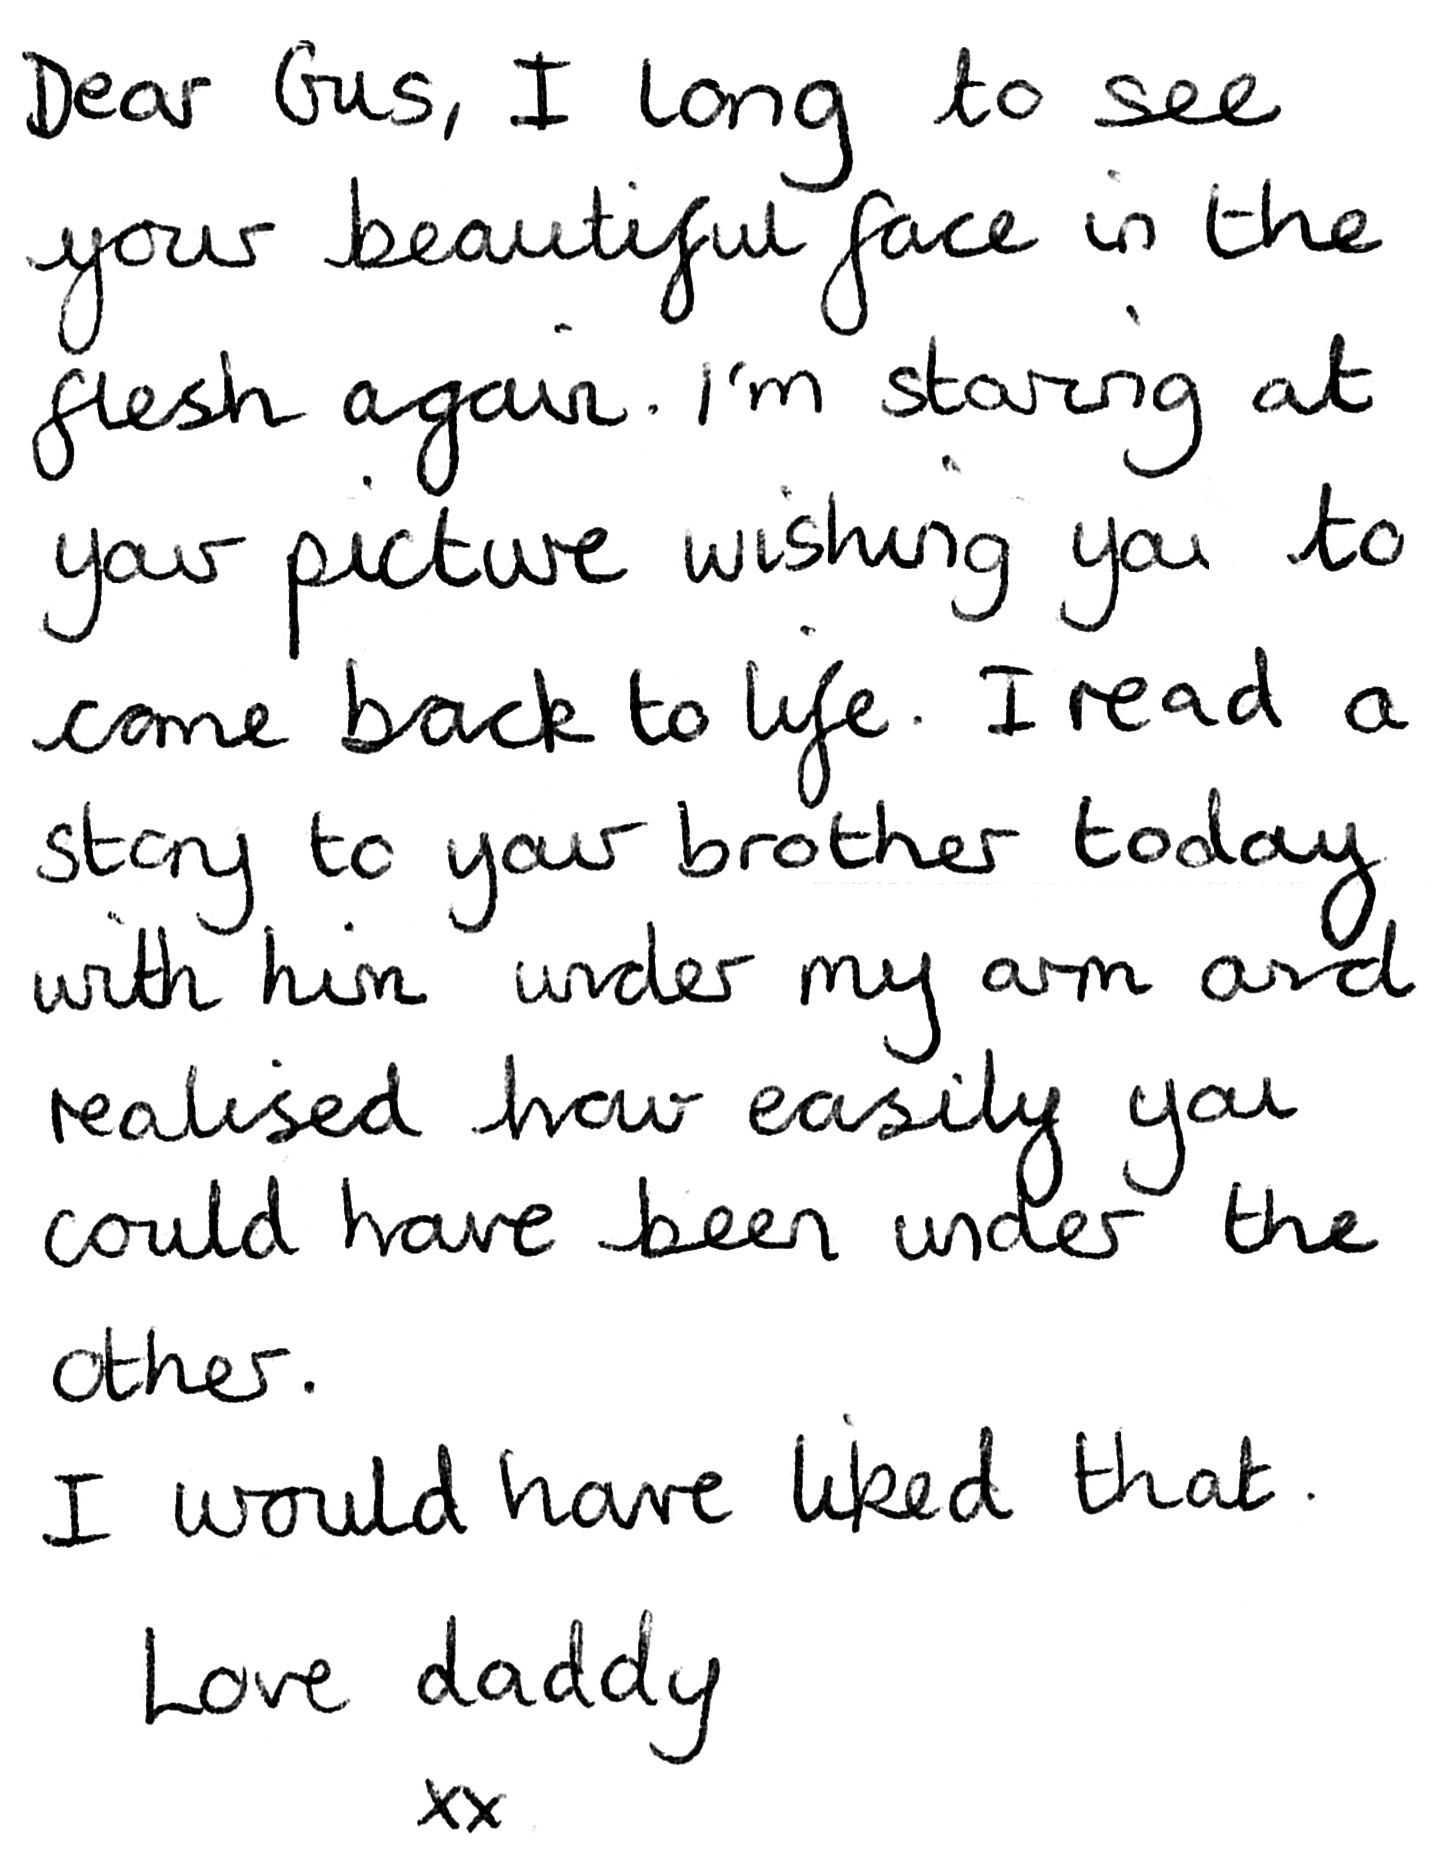 Dear Gus, I long to see
your beautiful face in the
flesh again. I'm staring at
your picture wishing you to
come back to life. I read a
story to your brother today
with him under my arm and
realised how easily you
could have been under the
other.
I would have liked that.
Love daddy
xx